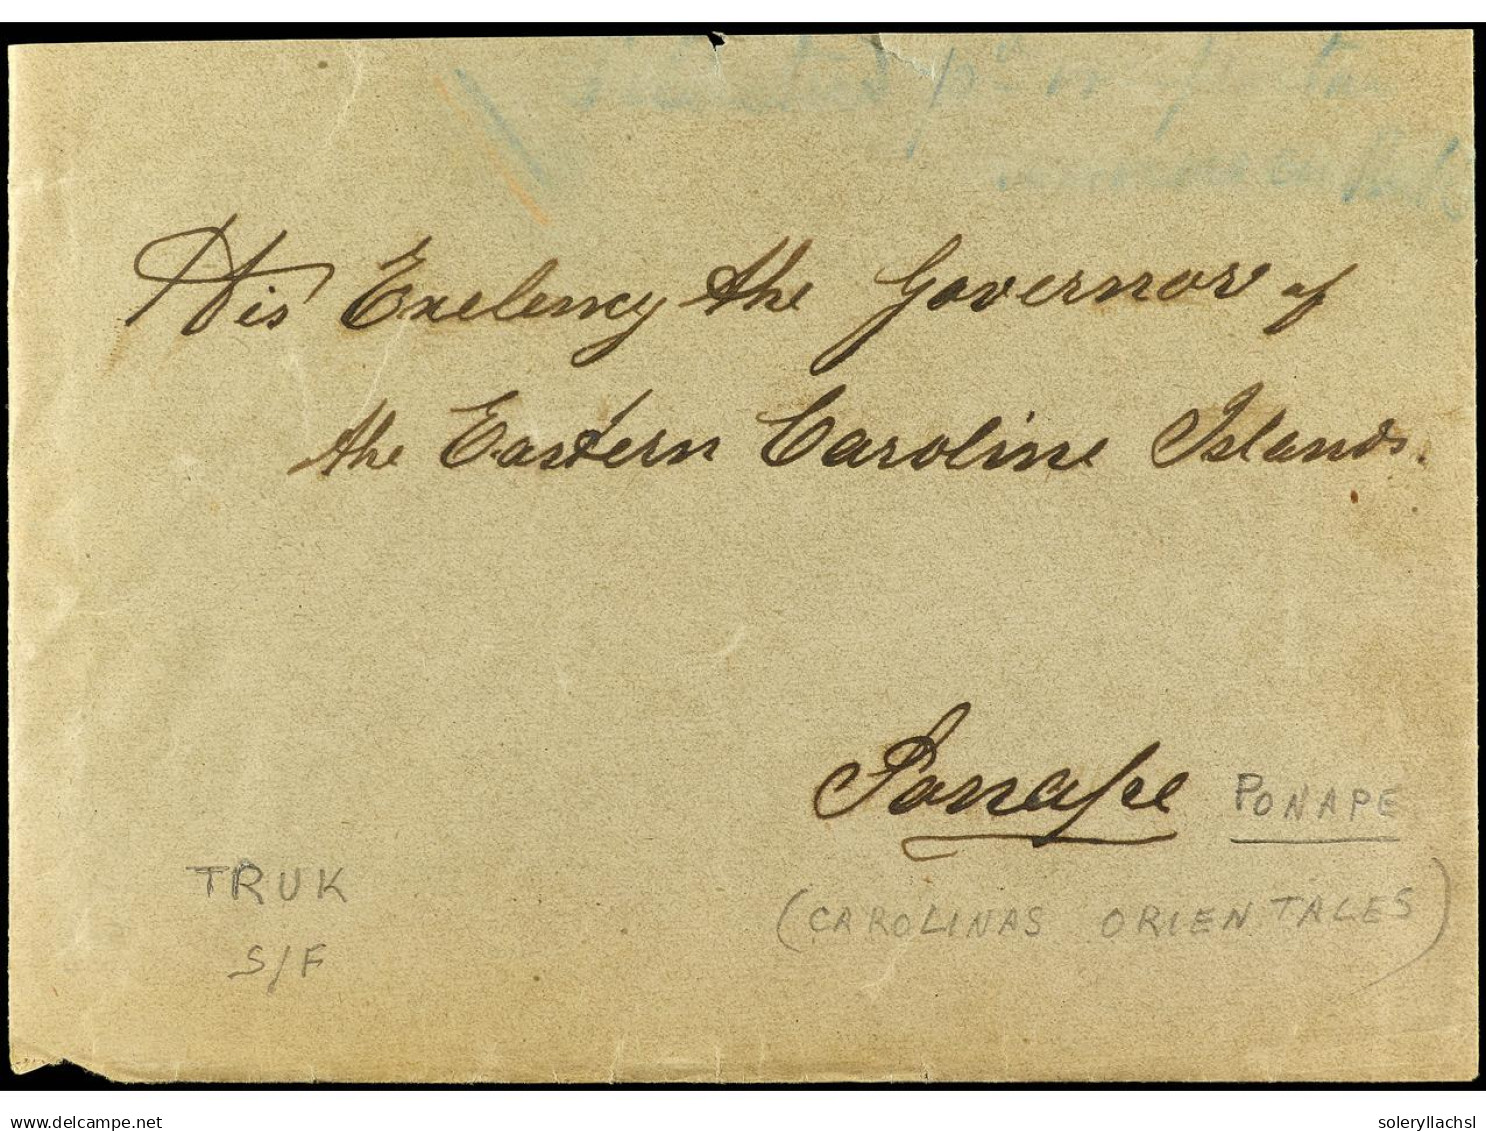 His Exelency the Governor of
the Eastern Caroline Islands.
Ponape PONAPE
TRUK
(CAROLINAS ORIENTALES)
S/F
www.delcampe.net
soleryllachsl